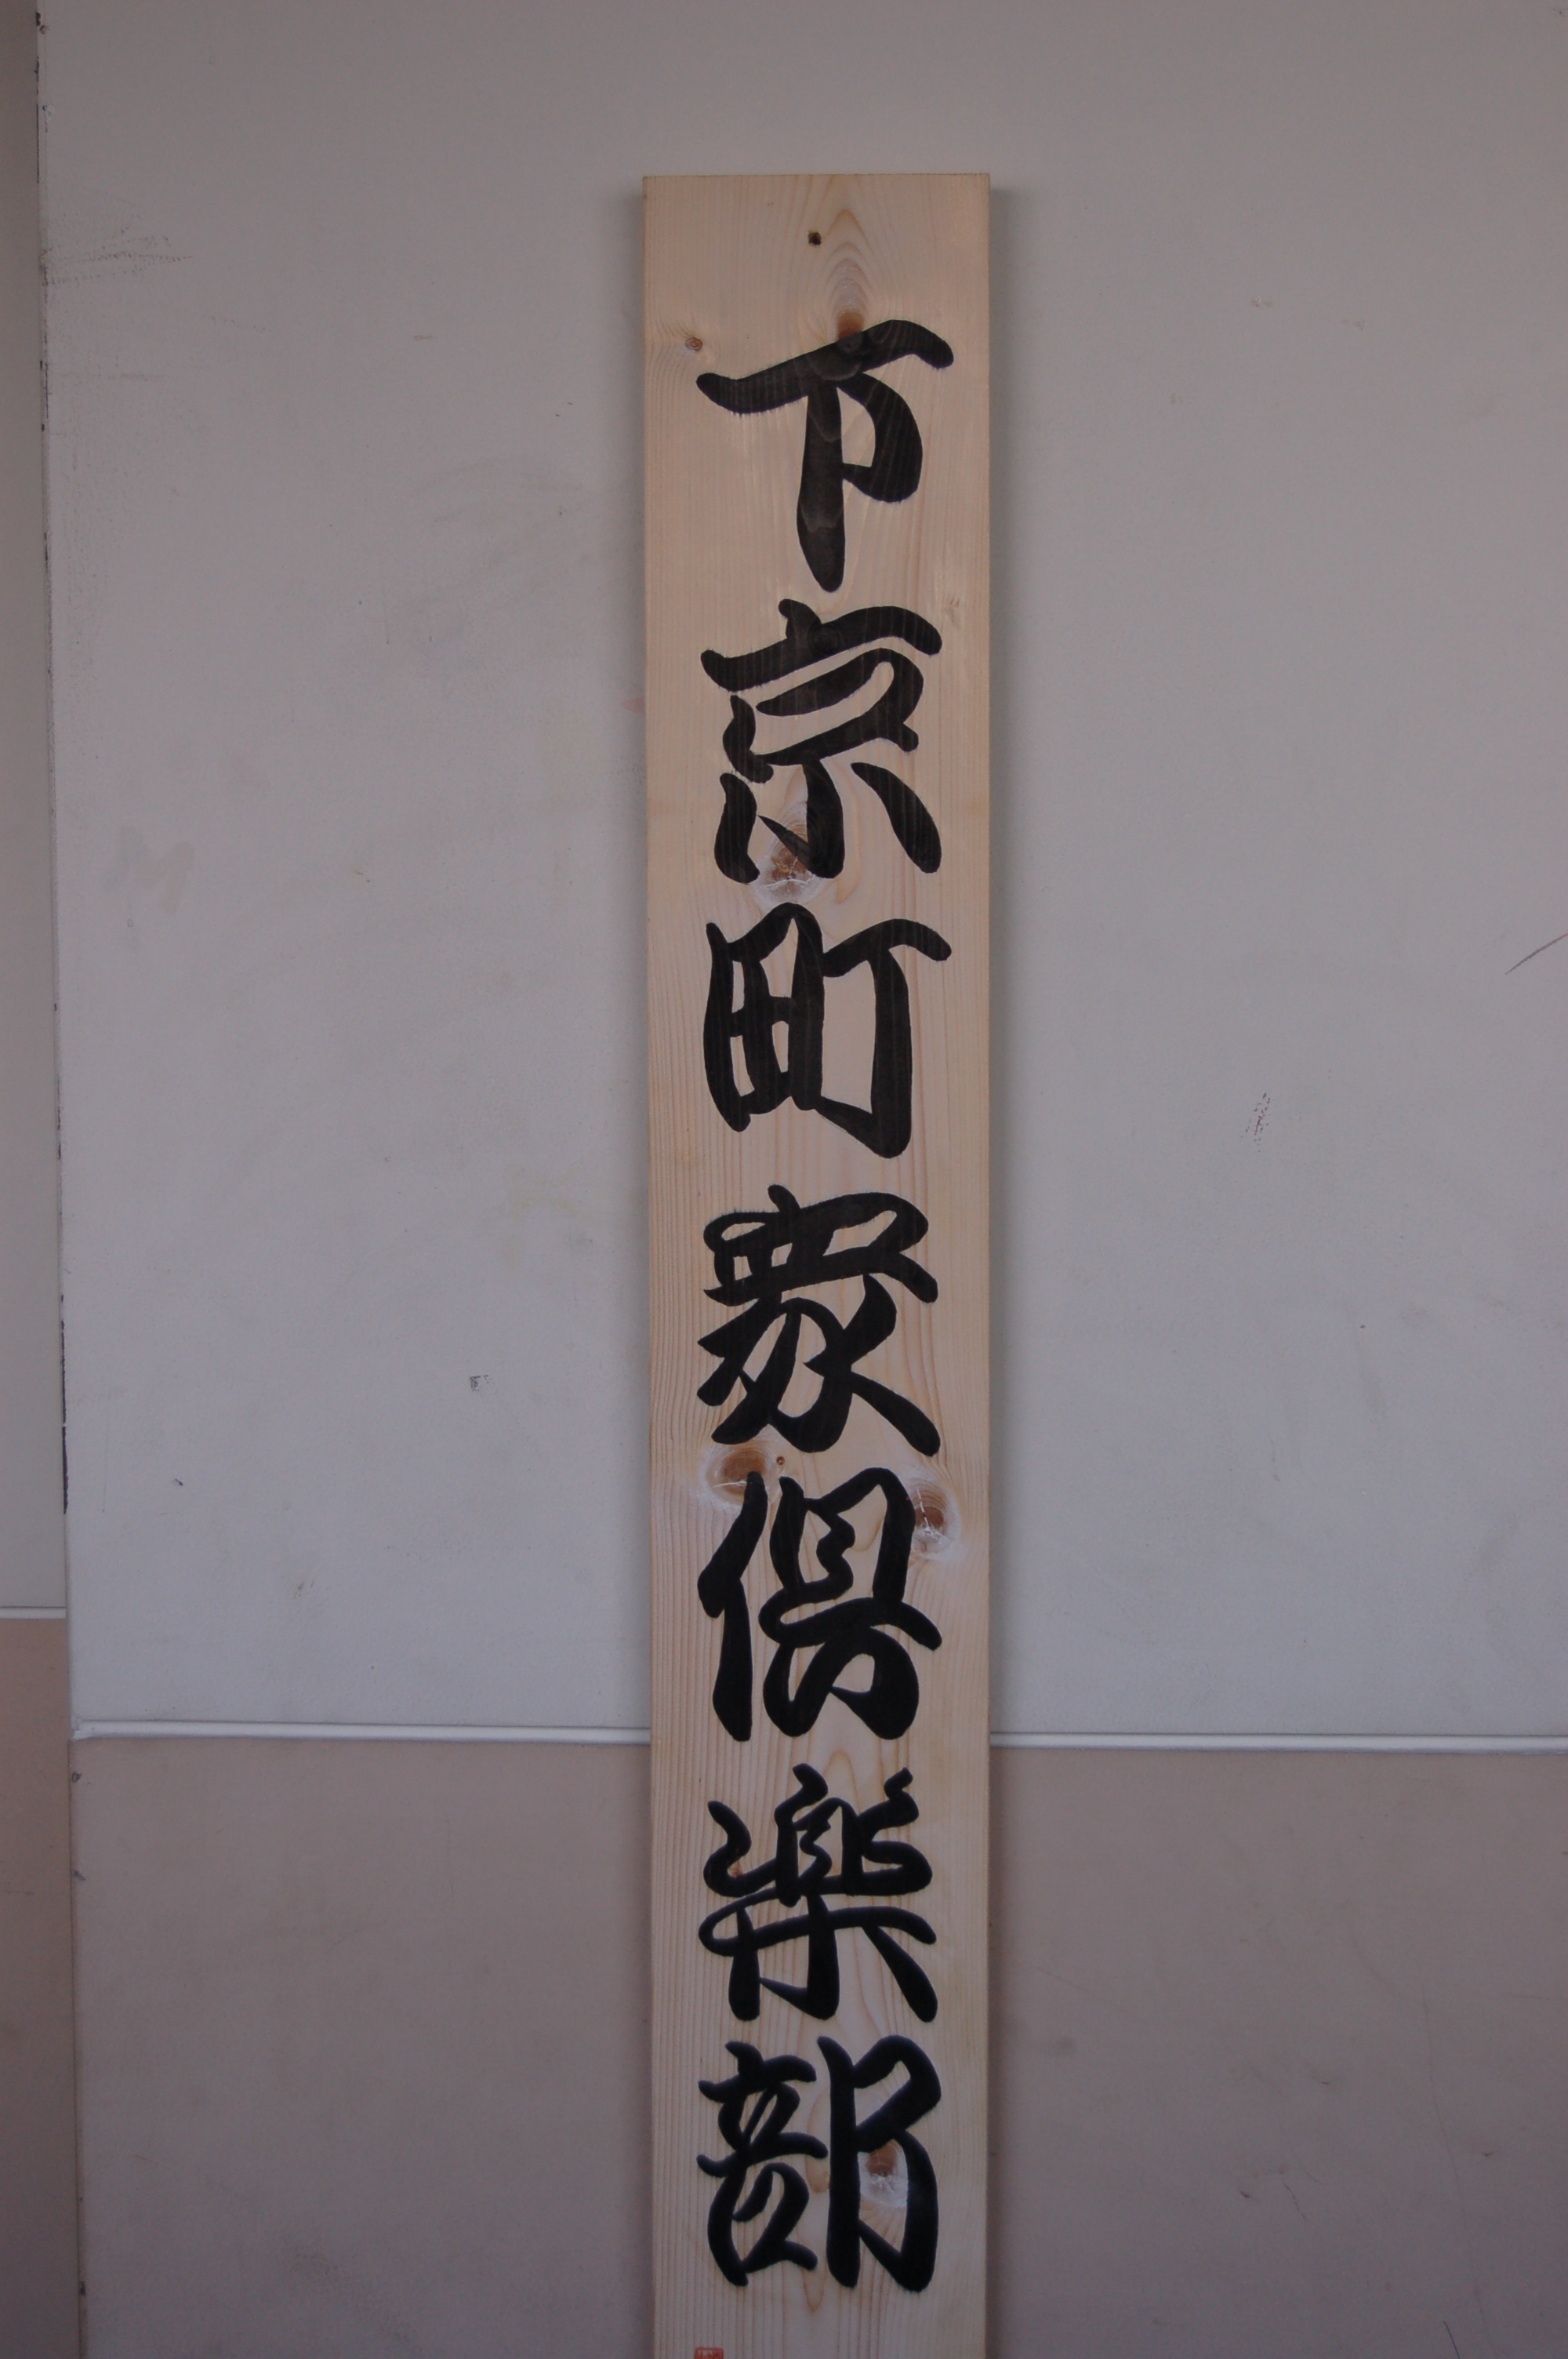 下京町衆倶楽部